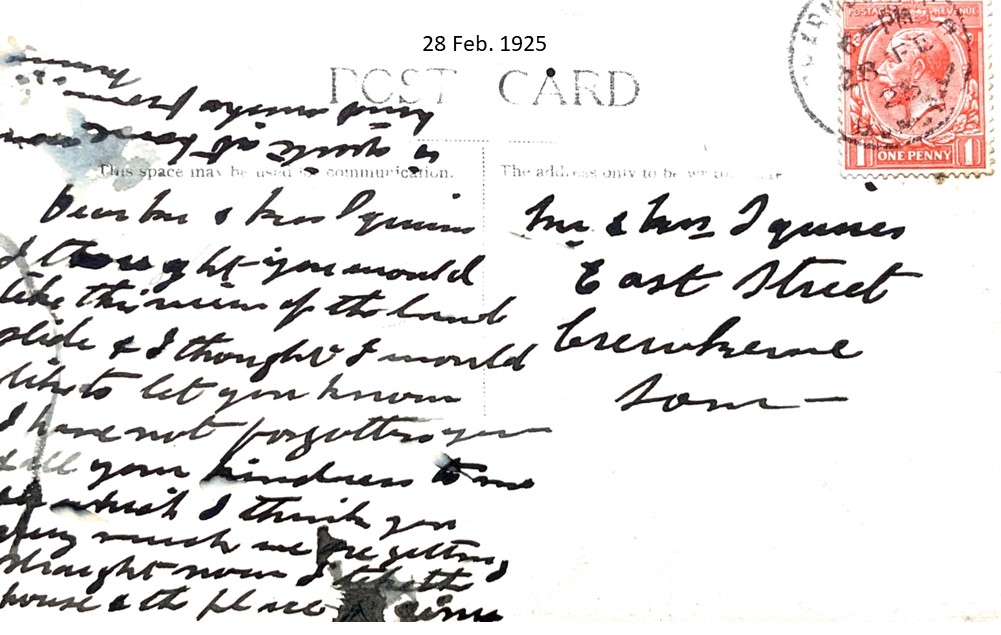 28 Feb. 1925
POST CARD
This space may be used for communication.
The address only to be written here
POSTAGE REVENUE
6 - PM
28 FE
25
1 ONE PENNY 1
Mr & Mrs Squires
East Street
Crewkerne
Som
Dear Mr & Mrs Squires
I thought you would
like this view of the land
slide & I thought I would
like to let you know
I have not forgotten you
& all your kindness to me
which I thank you
very much we are getting
straight now I like the
house & the place
is quite at home
kind